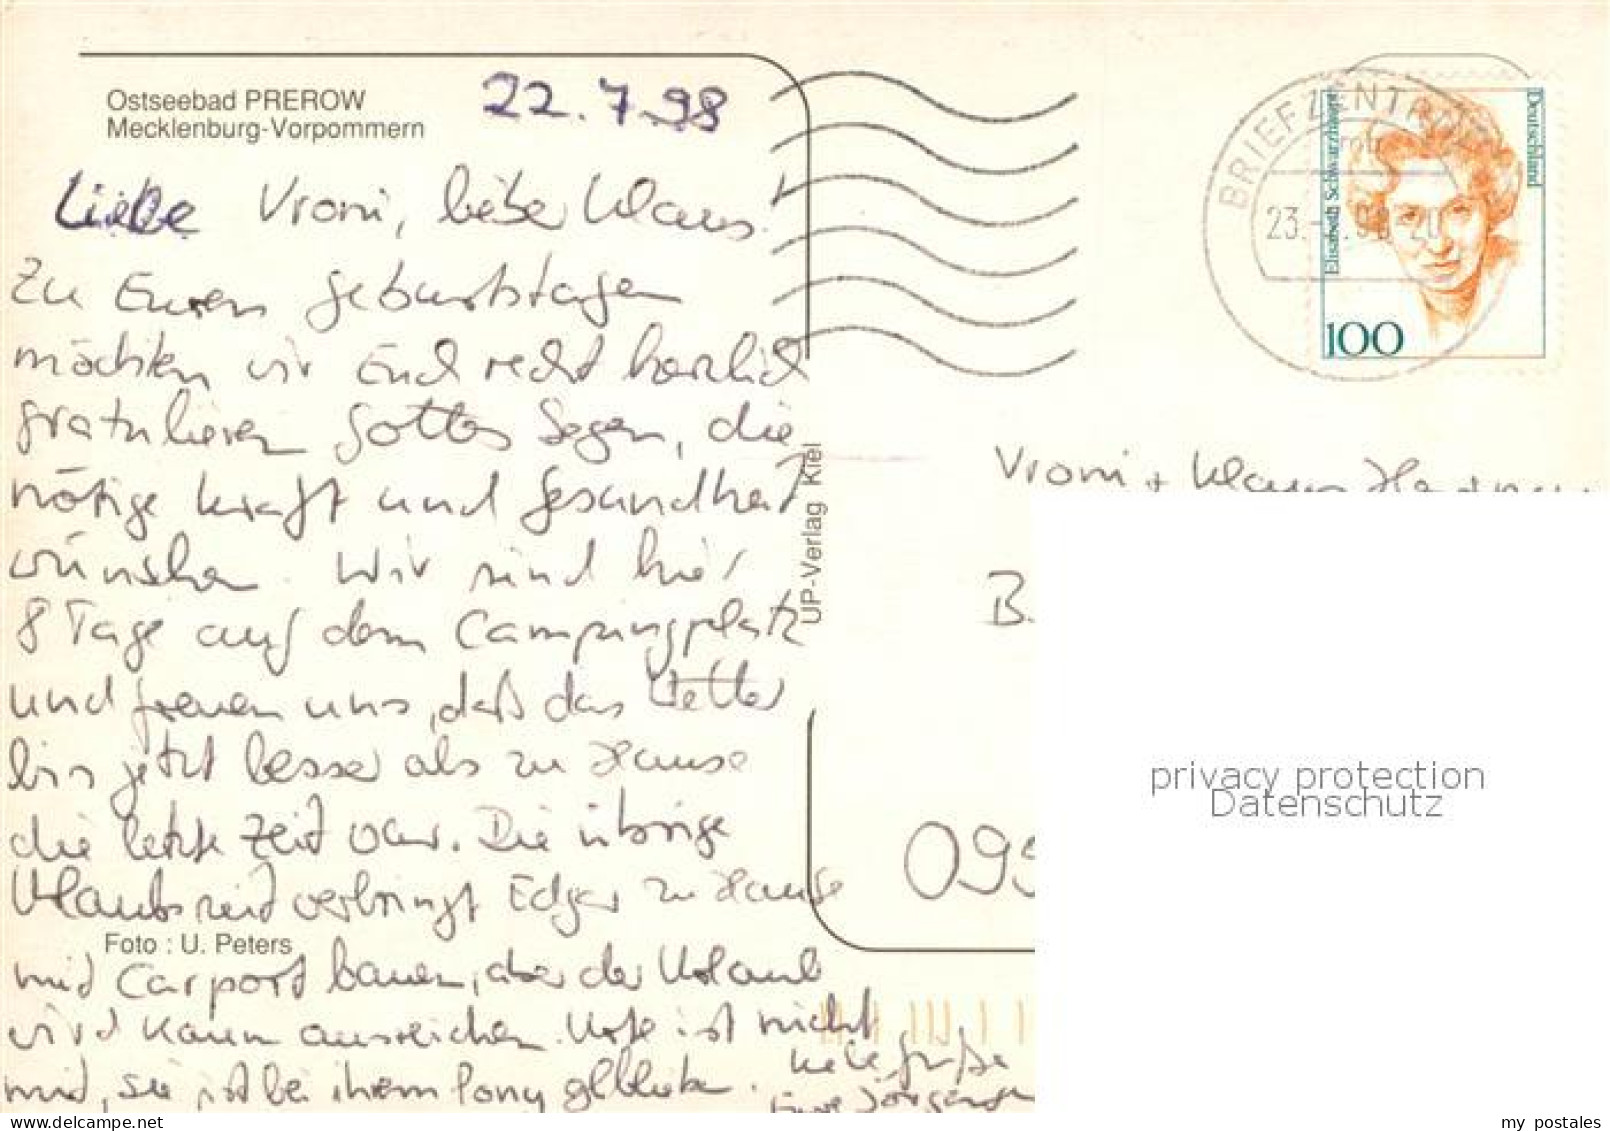 Ostseebad PREROW
Mecklenburg-Vorpommern
22.7.98
Liebe Vroni, lieber Klaus.
Zu Euren Geburtstagen
möchten wir Euch recht herzlich
gratulieren Gottes Segen, die
nötige Kraft und Gesundheit
wünschen. Wir sind hier
8 Tage auf dem Campingplatz
und freuen uns, daß das Wetter
bis jetzt besser als zu Hause
die letzte Zeit war. Die übrige
Urlaubszeit verbringt Edgar zu Hause
Foto : U. Peters
mit Carport bauen, aber der Urlaub
wird kaum ausreichen. Ute ist nicht
mit, sie ist bei ihrem Pony geblieben.
Viele Grüße
Eure
UP-Verlag Kiel
BRIEFZENTRUM
23. 98
Deutschland
Elisabeth Schwarzhaupt
100
Vroni + Klaus
B.
099
privacy protection
Datenschutz
www.delcampe.net
my_postales